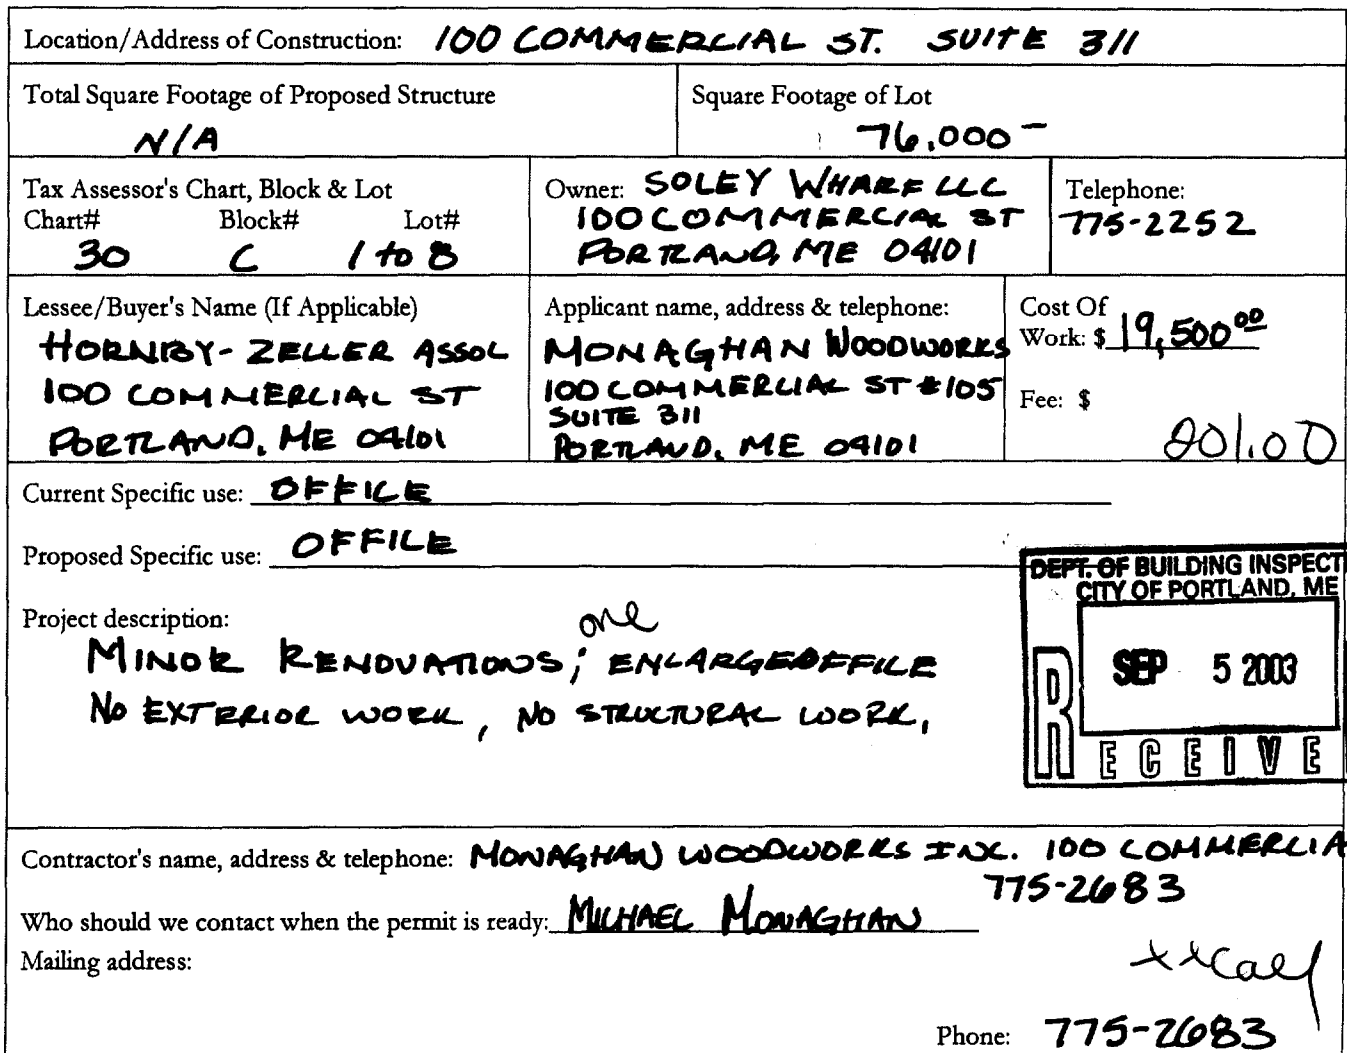 Location/Address of Construction: 100 COMMERCIAL ST. SUITE 311
Total Square Footage of Proposed Structure
N/A
Square Footage of Lot
76,000-
Tax Assessor's Chart, Block & Lot
Chart# Block# Lot#
30 C 1 to 8
Owner: SOLEY WHARF LLC
100 COMMERCIAL ST
PORTLAND, ME 04101
Telephone:
775-2252
Lessee/Buyer's Name (If Applicable)
HORNBY-ZELLER ASSOC
100 COMMERCIAL ST
PORTLAND, ME 04101
Applicant name, address & telephone:
MONAGHAN WOODWORKS
100 COMMERCIAL ST #105
SUITE 311
PORTLAND, ME 04101
Cost Of
Work: $ 19,500.00
Fee: $
201.00
Current Specific use: OFFICE
Proposed Specific use: OFFICE
DEPT. OF BUILDING INSPECT
CITY OF PORTLAND, ME
SEP 5 2003
RECEIVE
Project description:
one
MINOR RENOVATIONS; ENLARGE OFFICE
NO EXTERIOR WORK, NO STRUCTURAL WORK.
Contractor's name, address & telephone: MONAGHAN WOODWORKS INC. 100 COMMERCIA
775-2683
Who should we contact when the permit is ready: MICHAEL MONAGHAN
Mailing address:
xxCall
Phone: 775-2683